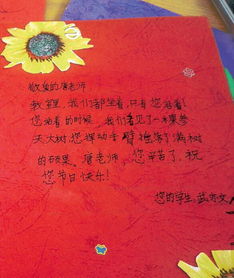 敬爱的唐老师
教室里,我们都坐着,只有您站着!
您站着的时候,我们看见了一棵参
天大树您挥动手臂摇落了满树
的硕果。唐老师,您辛苦了,祝
您节日快乐!
您的学生,武文